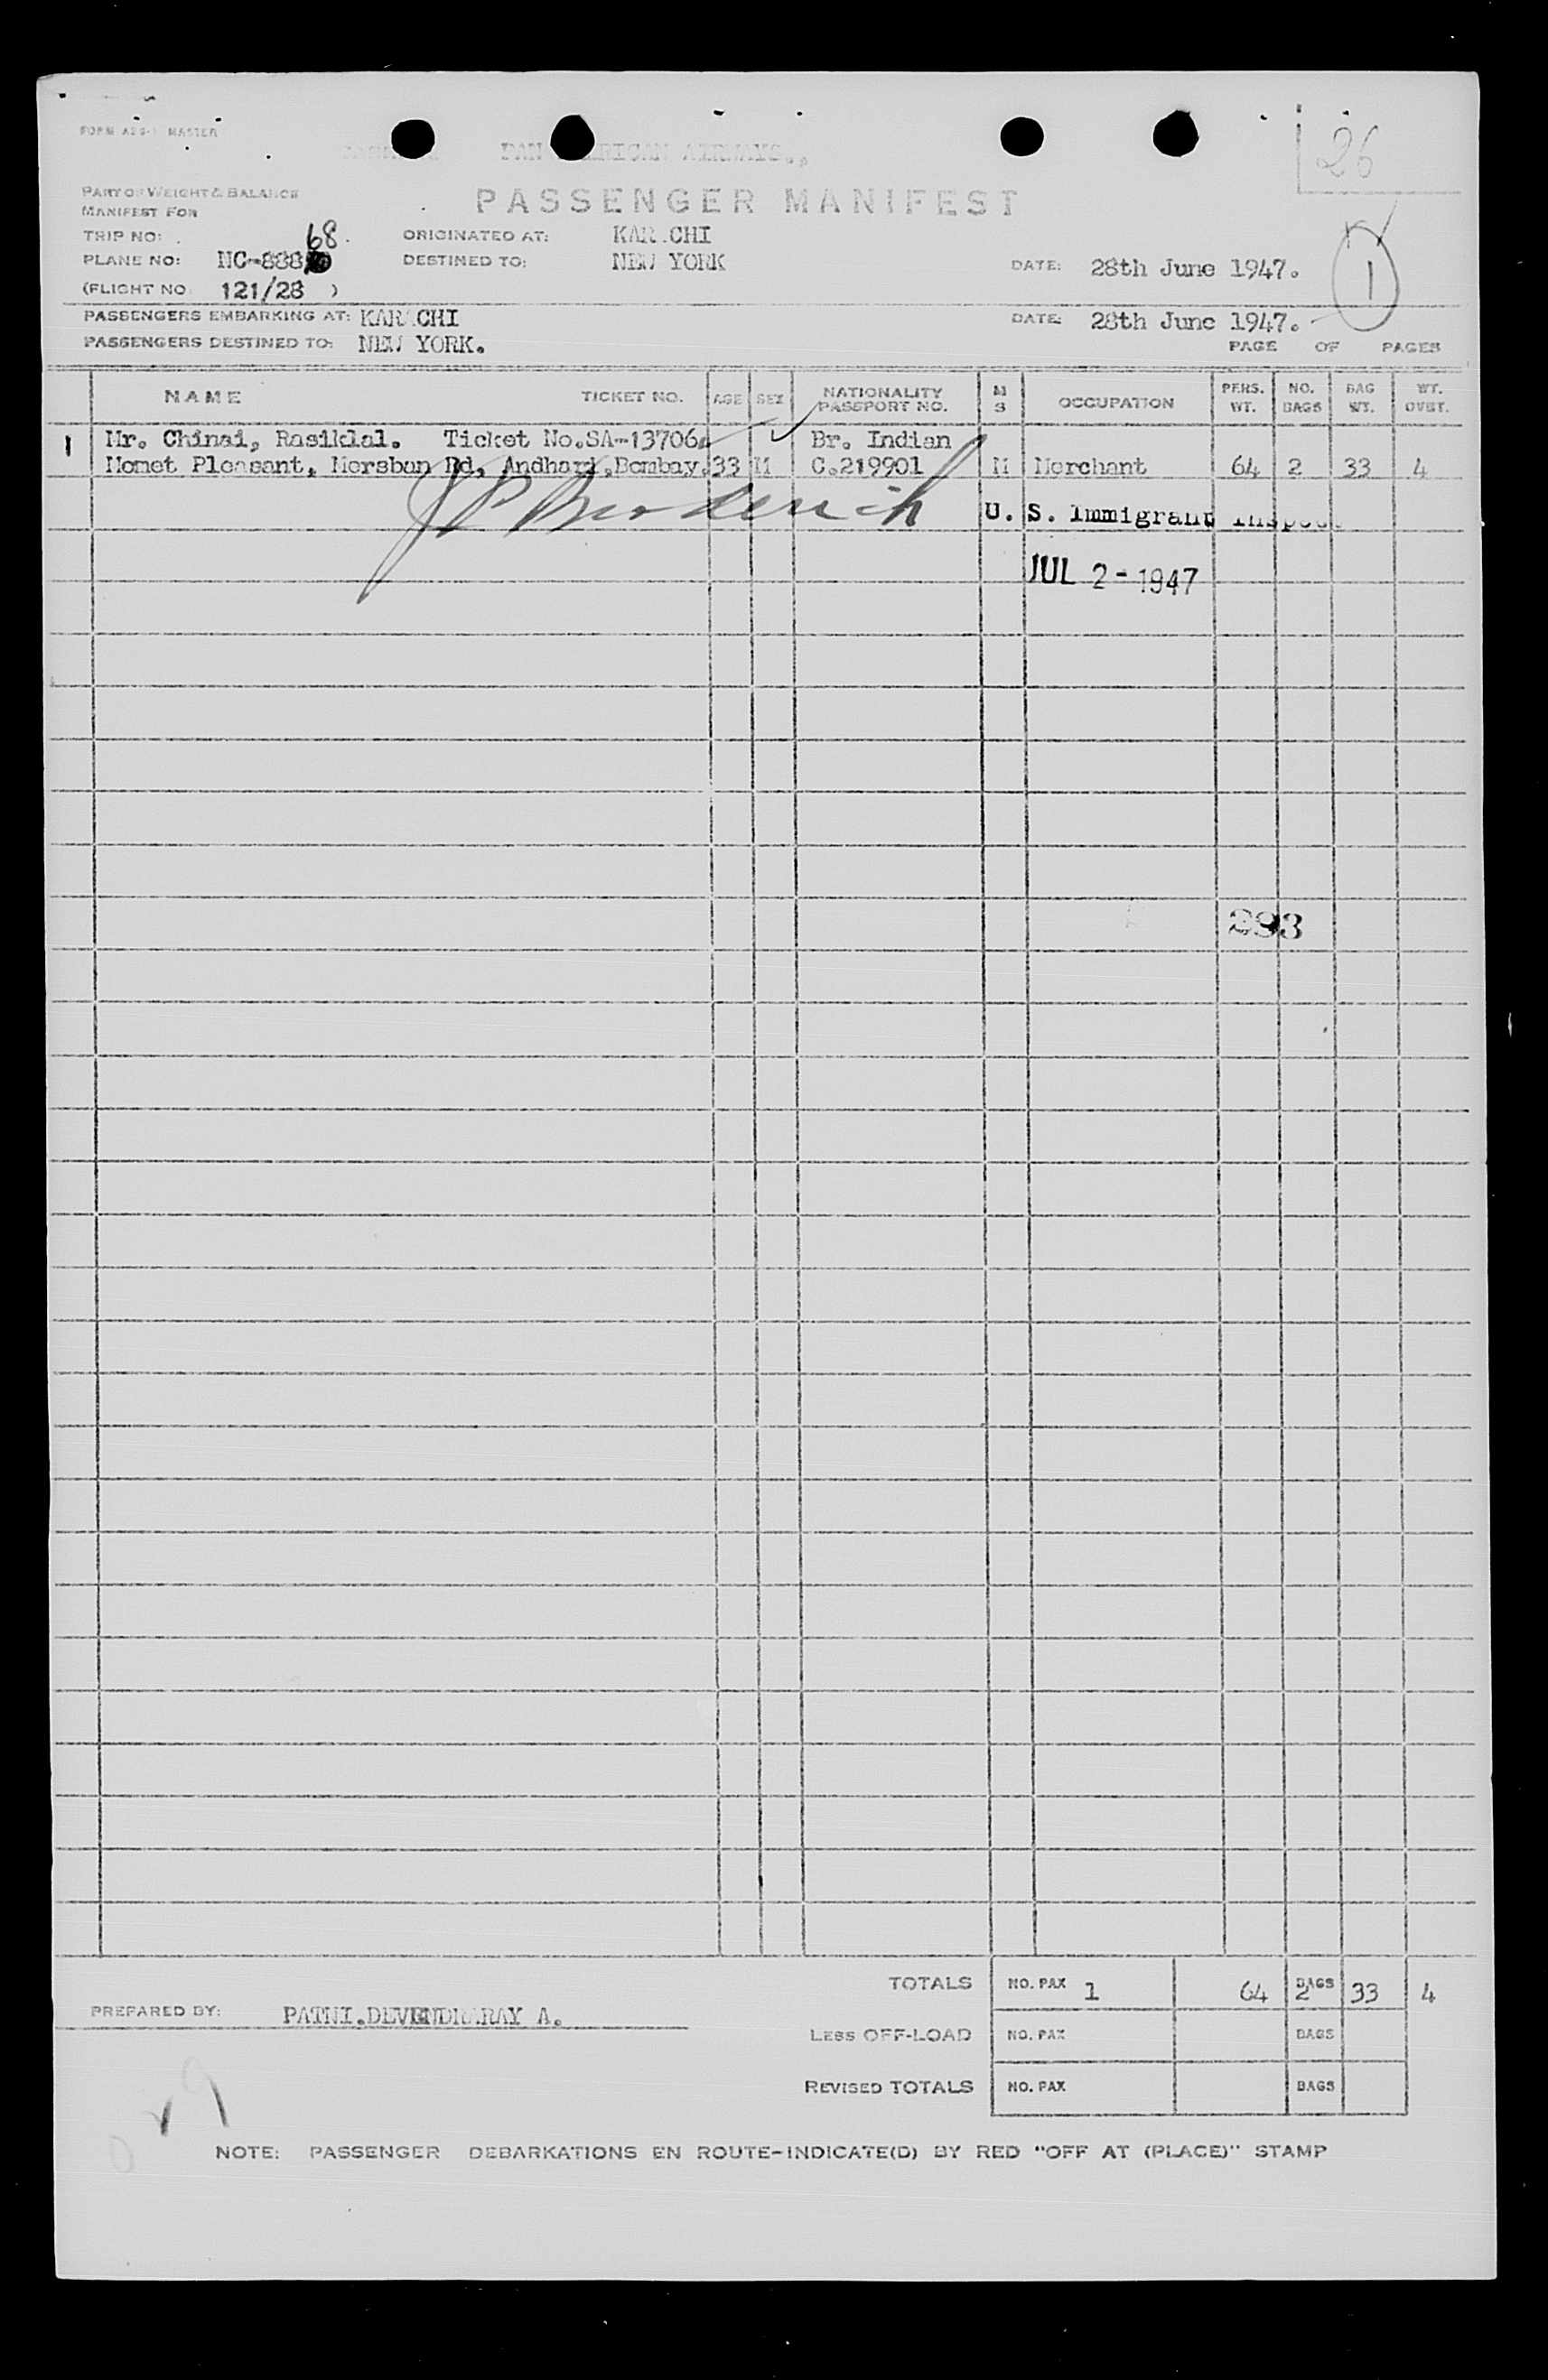 FORM A28-1 MASTER
PAN AMERICAN AIRWAYS.,
26
PART OF WEIGHT & BALANCE
MANIFEST FOR
PASSENGER MANIFEST
TRIP NO:
68
ORIGINATED AT: KARACHI
PLANE NO: NC-888
DESTINED TO: NEW YORK
DATE: 28th June 1947.
1
(FLIGHT NO. 121/28 )
PASSENGERS EMBARKING AT: KARACHI
DATE: 28th June 1947.
PASSENGERS DESTINED TO: NEW YORK.
PAGE OF PAGES
NAME TICKET NO. AGE SEX NATIONALITY PASSPORT NO. M S OCCUPATION PERS. WT. NO. BAGS BAG WT. WT. OVST.
1 Mr. Chinai, Rasiklal. Ticket No.SA-13706. Br. Indian
Momet Pleasant, Mersban Rd, Andhari,Bombay. 33 M C.219901 M Merchant 64 2 33 4
J P Broderick
U. S. Immigrant Inspec
JUL 2 - 1947
293
TOTALS NO. PAX 1 64 BAGS 2 33 4
PREPARED BY: PATNI.DEVENDRARAY A.
LESS OFF-LOAD NO. PAX BAGS
REVISED TOTALS NO. PAX BAGS
NOTE: PASSENGER DEBARKATIONS EN ROUTE-INDICATE(D) BY RED "OFF AT (PLACE)" STAMP